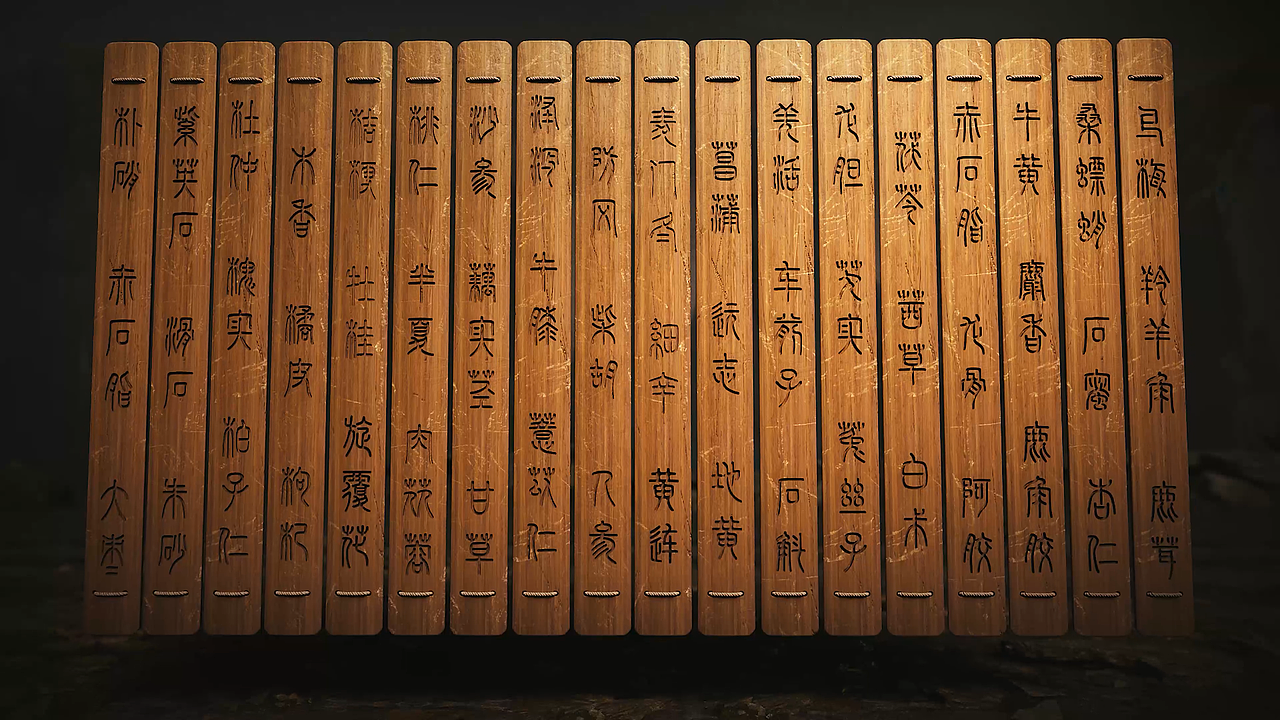 乌梅 羚羊角 鹿茸
桑螵蛸 石蜜 杏仁
牛黄 麝香 鹿角胶
赤石脂 龙骨 阿胶
茯苓 茜草 白术
龙胆 芡实 菟丝子
羌活 车前子 石斛
菖蒲 远志 地黄
麦门冬 细辛 黄连
防风 柴胡 人参
泽泻 牛膝 薏苡仁
沙参 藕实茎 甘草
桃仁 半夏 肉苁蓉
桔梗 牡桂 旋覆花
木香 橘皮 枸杞
杜仲 槐实 柏子仁
紫英石 滑石 朱砂
朴硝 赤石脂 大枣